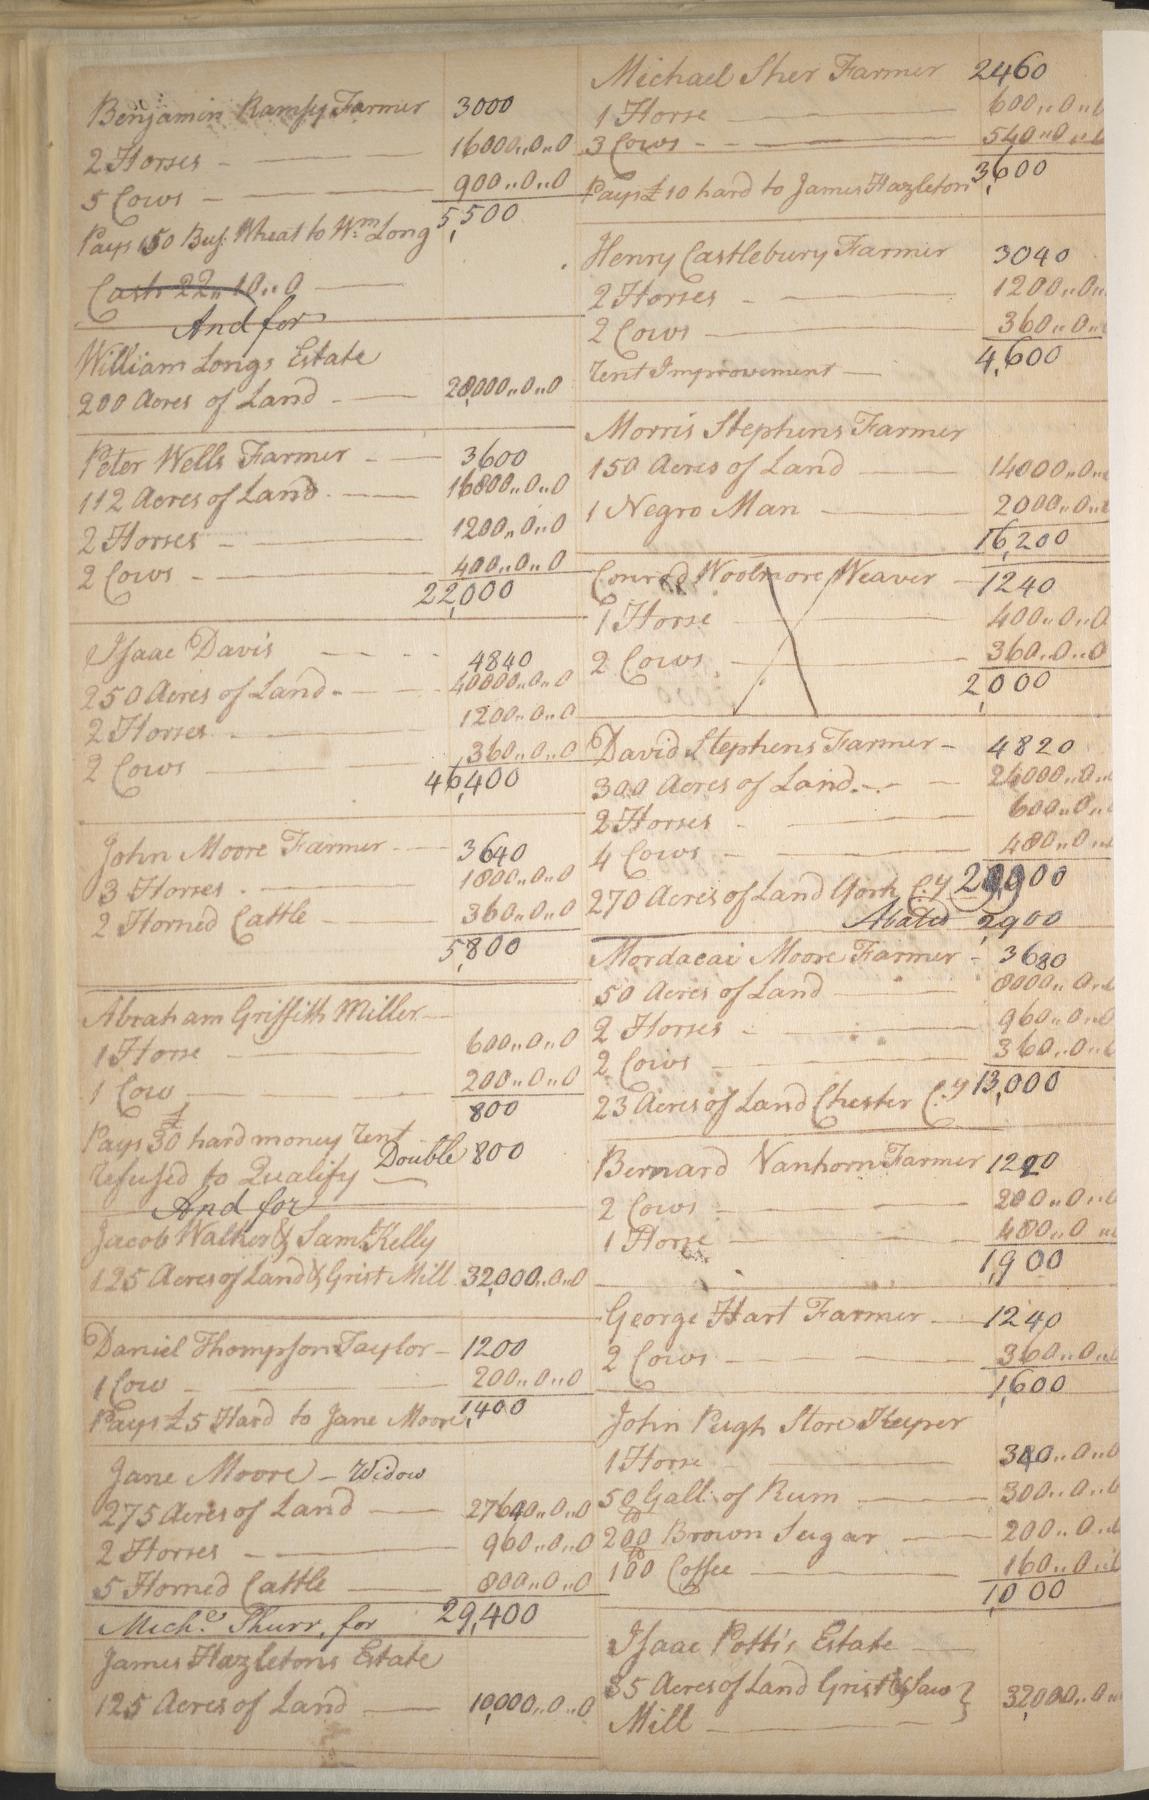 Benjamin Ramsey Farmer 3000
2 Horses 1600,,0,,0
5 Cows 900,,0,,0
5,500
Pays 150 Bus: Wheat to Wm. Long
Cash 22,,10,,0
And for
William Longs Estate
200 Acres of Land 20,000,,0,,0
Peter Wells Farmer 3600
112 Acres of Land 16800,,0,,0
2 Horses 1200,,0,,0
2 Cows 400,,0,,0
22,000
Isaac Davis 4840
250 Acres of Land 40000,,0,,0
2 Horses 1200,,0,,0
2 Cows 360,,0,,0
46,400
John Moore Farmer 3640
3 Horses 1800,,0,,0
2 Horned Cattle 360,,0,,0
5,800
Abraham Griffith Miller
1 Horse 600,,0,,0
1 Cow 200,,0,,0
800
Pays £30 hard money rent
refused to Qualify Double 800
And for
Jacob Walker & Saml. Kelly
125 Acres of Land & Grist Mill 32,000,,0,,0
Daniel Thompson Taylor 1200
1 Cow 200,,0,,0
1,400
Pays £5 Hard to Jane Moore
Jane Moore - Widow
275 Acres of Land 27640,,0,,0
2 Horses 960,,0,,0
5 Horned Cattle 800,,0,,0
29,400
Michl. Shurr, for
James Hazletons Estate
125 Acres of Land 10,000,,0,,0
Michael Sher Farmer 2460
1 Horse 600,,0,,0
3 Cows 540,,0,,0
3,600
Pays £10 hard to James Hazleton
Henry Castlebury Farmer 3040
2 Horses 1200,,0,,
2 Cows 360,,0,,
4,600
rent Improvement
Morris Stephens Farmer
150 Acres of Land 14000,,0,,
1 Negro Man 2000,,0,,
16,200
Conrod Woolmore Weaver 1240
1 Horse 400,,0,,0
2 Cows 360,,0,,0
2,000
David Stephens Farmer 4820
300 Acres of Land 24000,,0,,
2 Horses 600,,0,,
4 Cows 480,,0,,
270 Acres of Land York C:y
Abated 2,900
Mordacai Moore Farmer 3680
50 Acres of Land 8000,,0,,
2 Horses 960,,0,,0
2 Cows 360,,0,,
13,000
23 Acres of Land Chester C:y
Bernard Vanhorn Farmer 1220
2 Cows 200,,0,,
1 Horse 480,,0,,
1,900
George Hart Farmer 1240
2 Cows 360,,0,,
1,600
John Pugh Store Keeper
1 Horse 340,,0,,0
50 Gall: of Rum 300,,0,,
200 lb Brown Sugar 200,,0,,
100 lb Coffee 160,,0,,
1,000
Isaac Potts's Estate
85 Acres of Land Grist & Saw } 32,000,,0,,
Mill